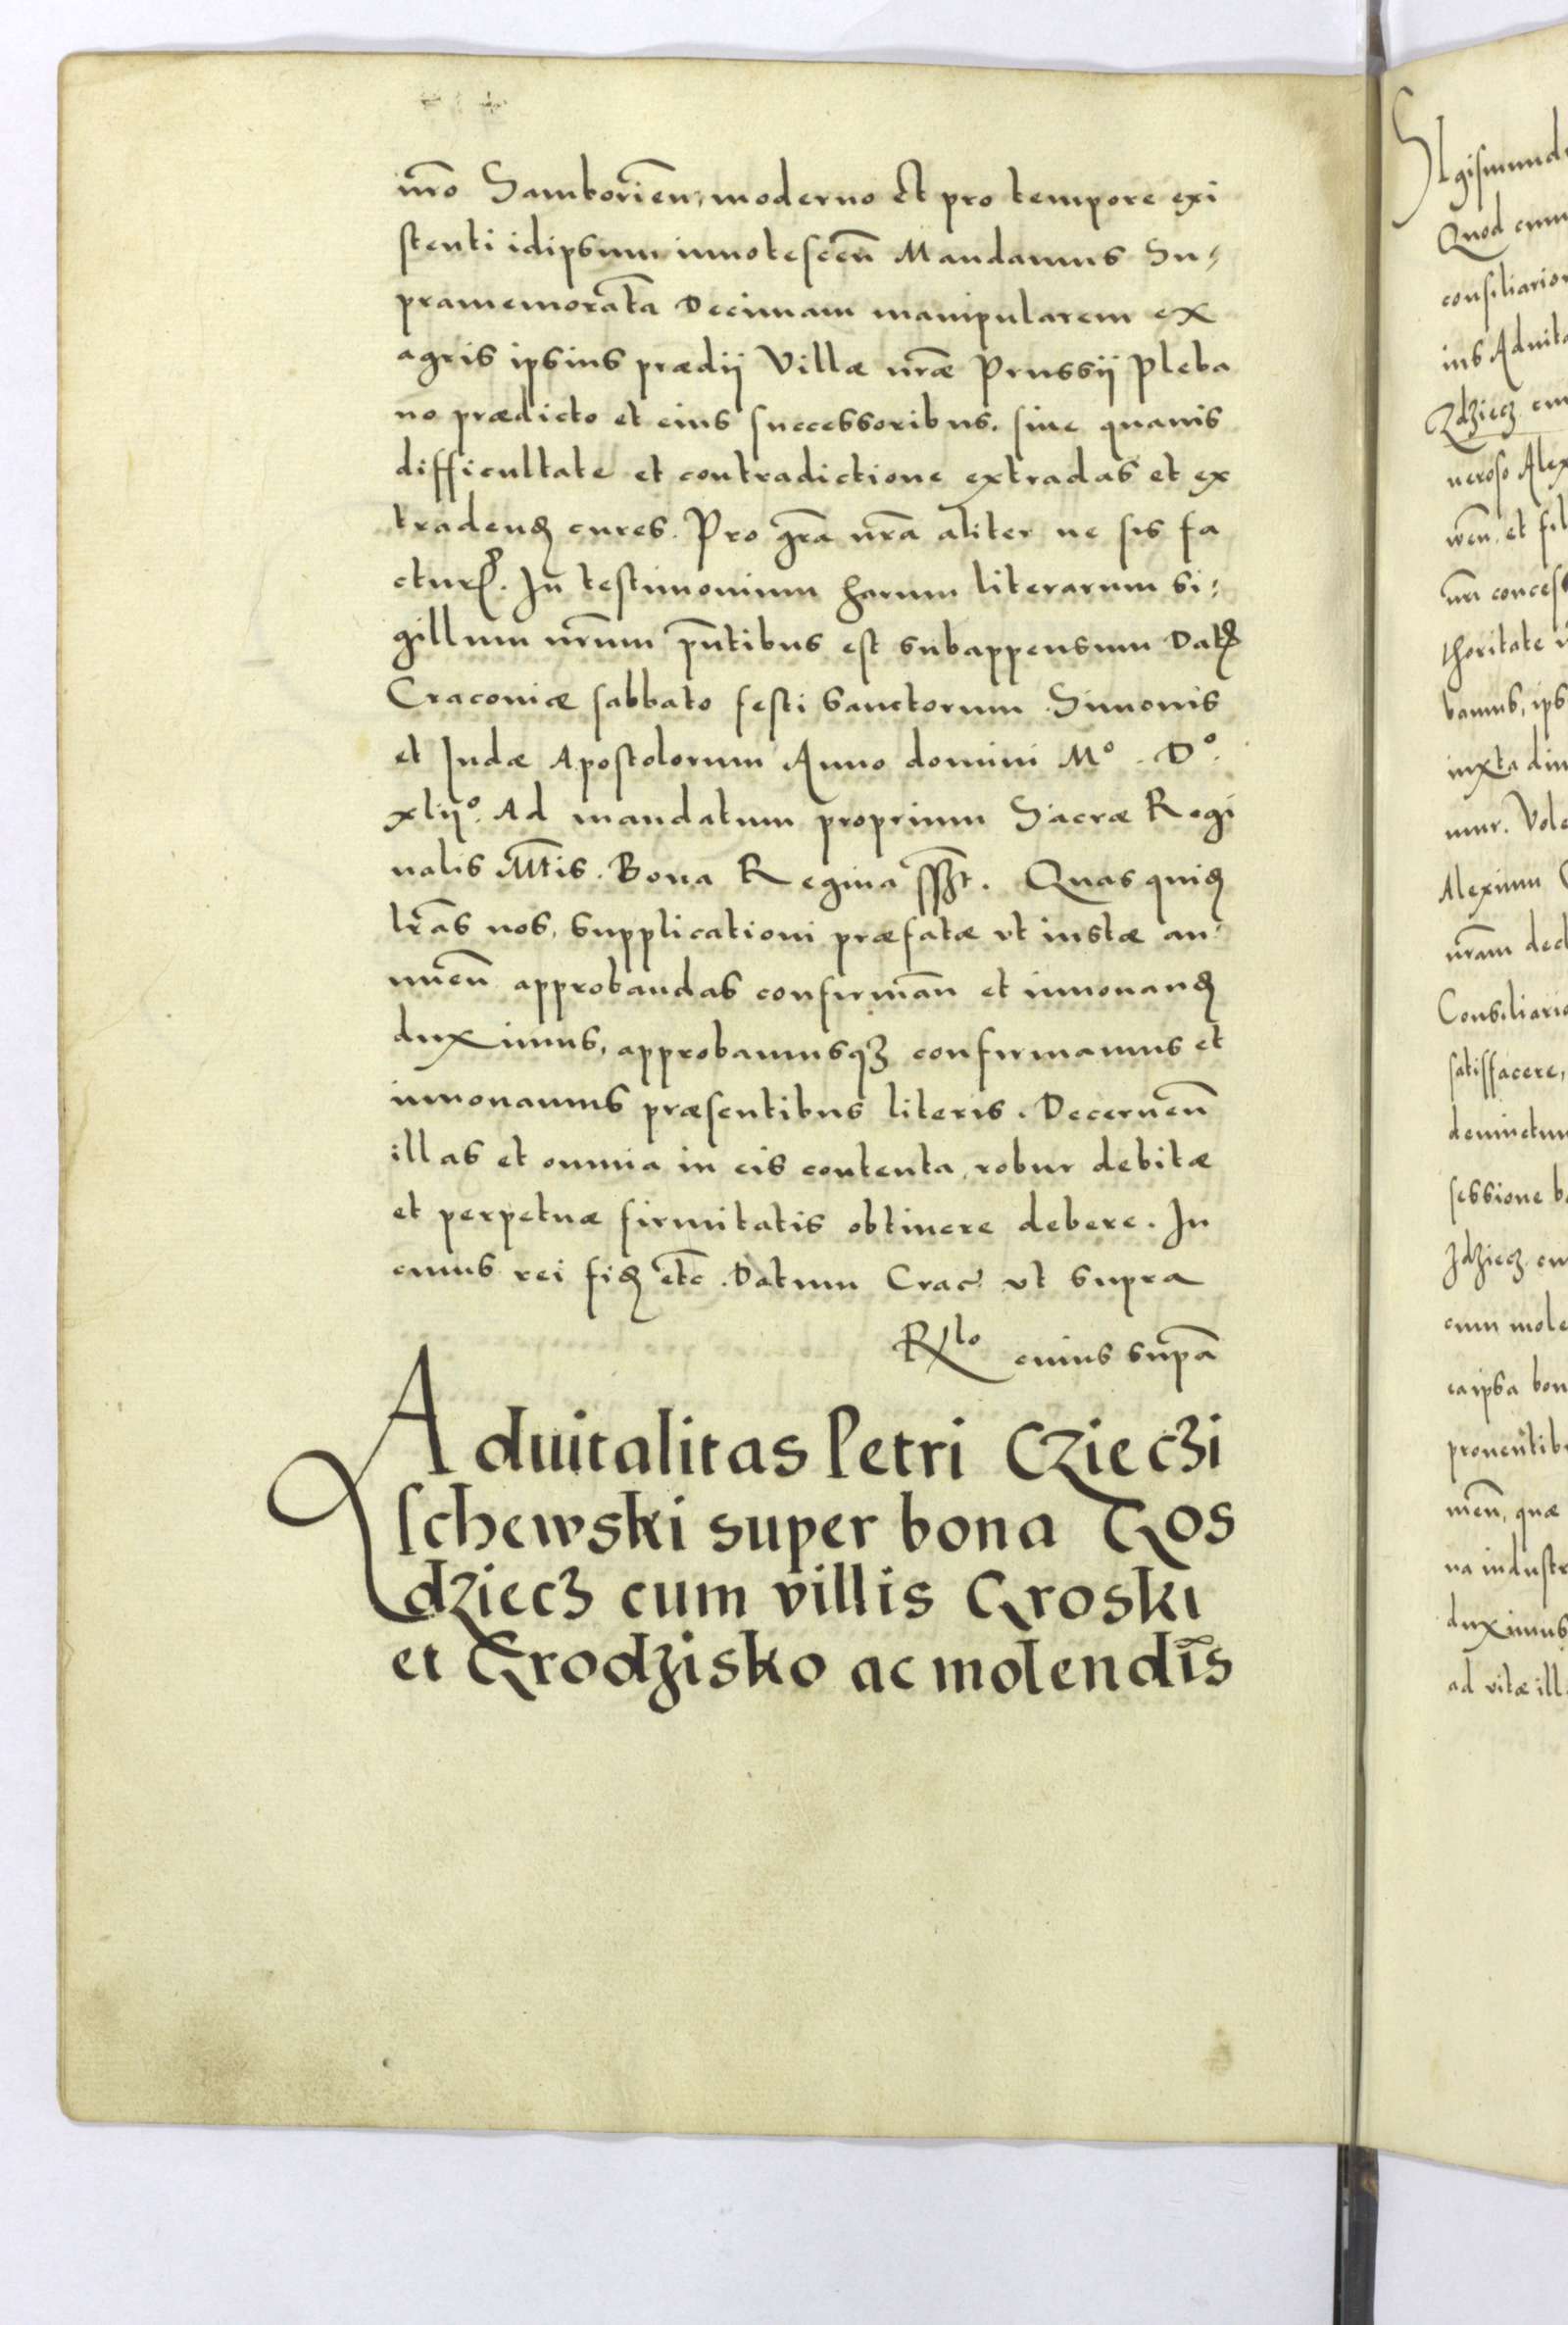 nr̃o Samborien̄, moderno Et pro tempore exi
stenti idipsum innotescen̄ Mandamus Su,
pramemorata̅ Decimam manipularem ex
agris ipsius prædij Villæ nr̃æ Prussij Pleba
no prædicto et eius successoribus. sine quauis
difficultate et contradictione extradas et ex
tradend̨ cures. Pro gr̃a nr̃a aliter ne sis fa
cturꝰ. In testimonium harum literarum si,
gillum nr̃um pn̄tibus est subappensum Datꝫ
Cracouiæ sabbato festi sanctorum Simonis
et Judæ Apostolorum Anno domini Mº. Dº.
xlijº. Ad mandatum proprium Sacræ Regi
nalis Mt̄is. Bona Regina sszt. Quas quid̨
lr̃as nos, supplicationi præfatæ vt iustæ an,
nuen̄ approbandas confirman̄ et innouand̨
duximus, approbamusqꝫ confirmamus et
innouamus præsentibus literis. Decernen̄
illas et omnia in eis contenta, robur debitæ
et perpetuæ firmitatis obtinere debere. In
cuius rei fid̨ etc̄. Datum Crac̄ vt supra
Rlo cuius sup̄a
Aduitalitas Petri Czieczi
schewski super bona Gos
dziecz cum villis Groski
et Grodzisko ac molendis̄
Sigismund
Quod cum
consiliario
ius Aduita
Zdziecz cu
neroso Alex
wen̄, et fil
um concess
thoritate
bamus, ips
iuxta
mur. Vole
Alexium
nr̃am ded
Consiliario
satisfacere,
deuinctum
sessione b
Zdziecz cu
cum mole
ea ipsa bon
prouentib
men̄, quæ
na industr
duximus
ad vitæ ill